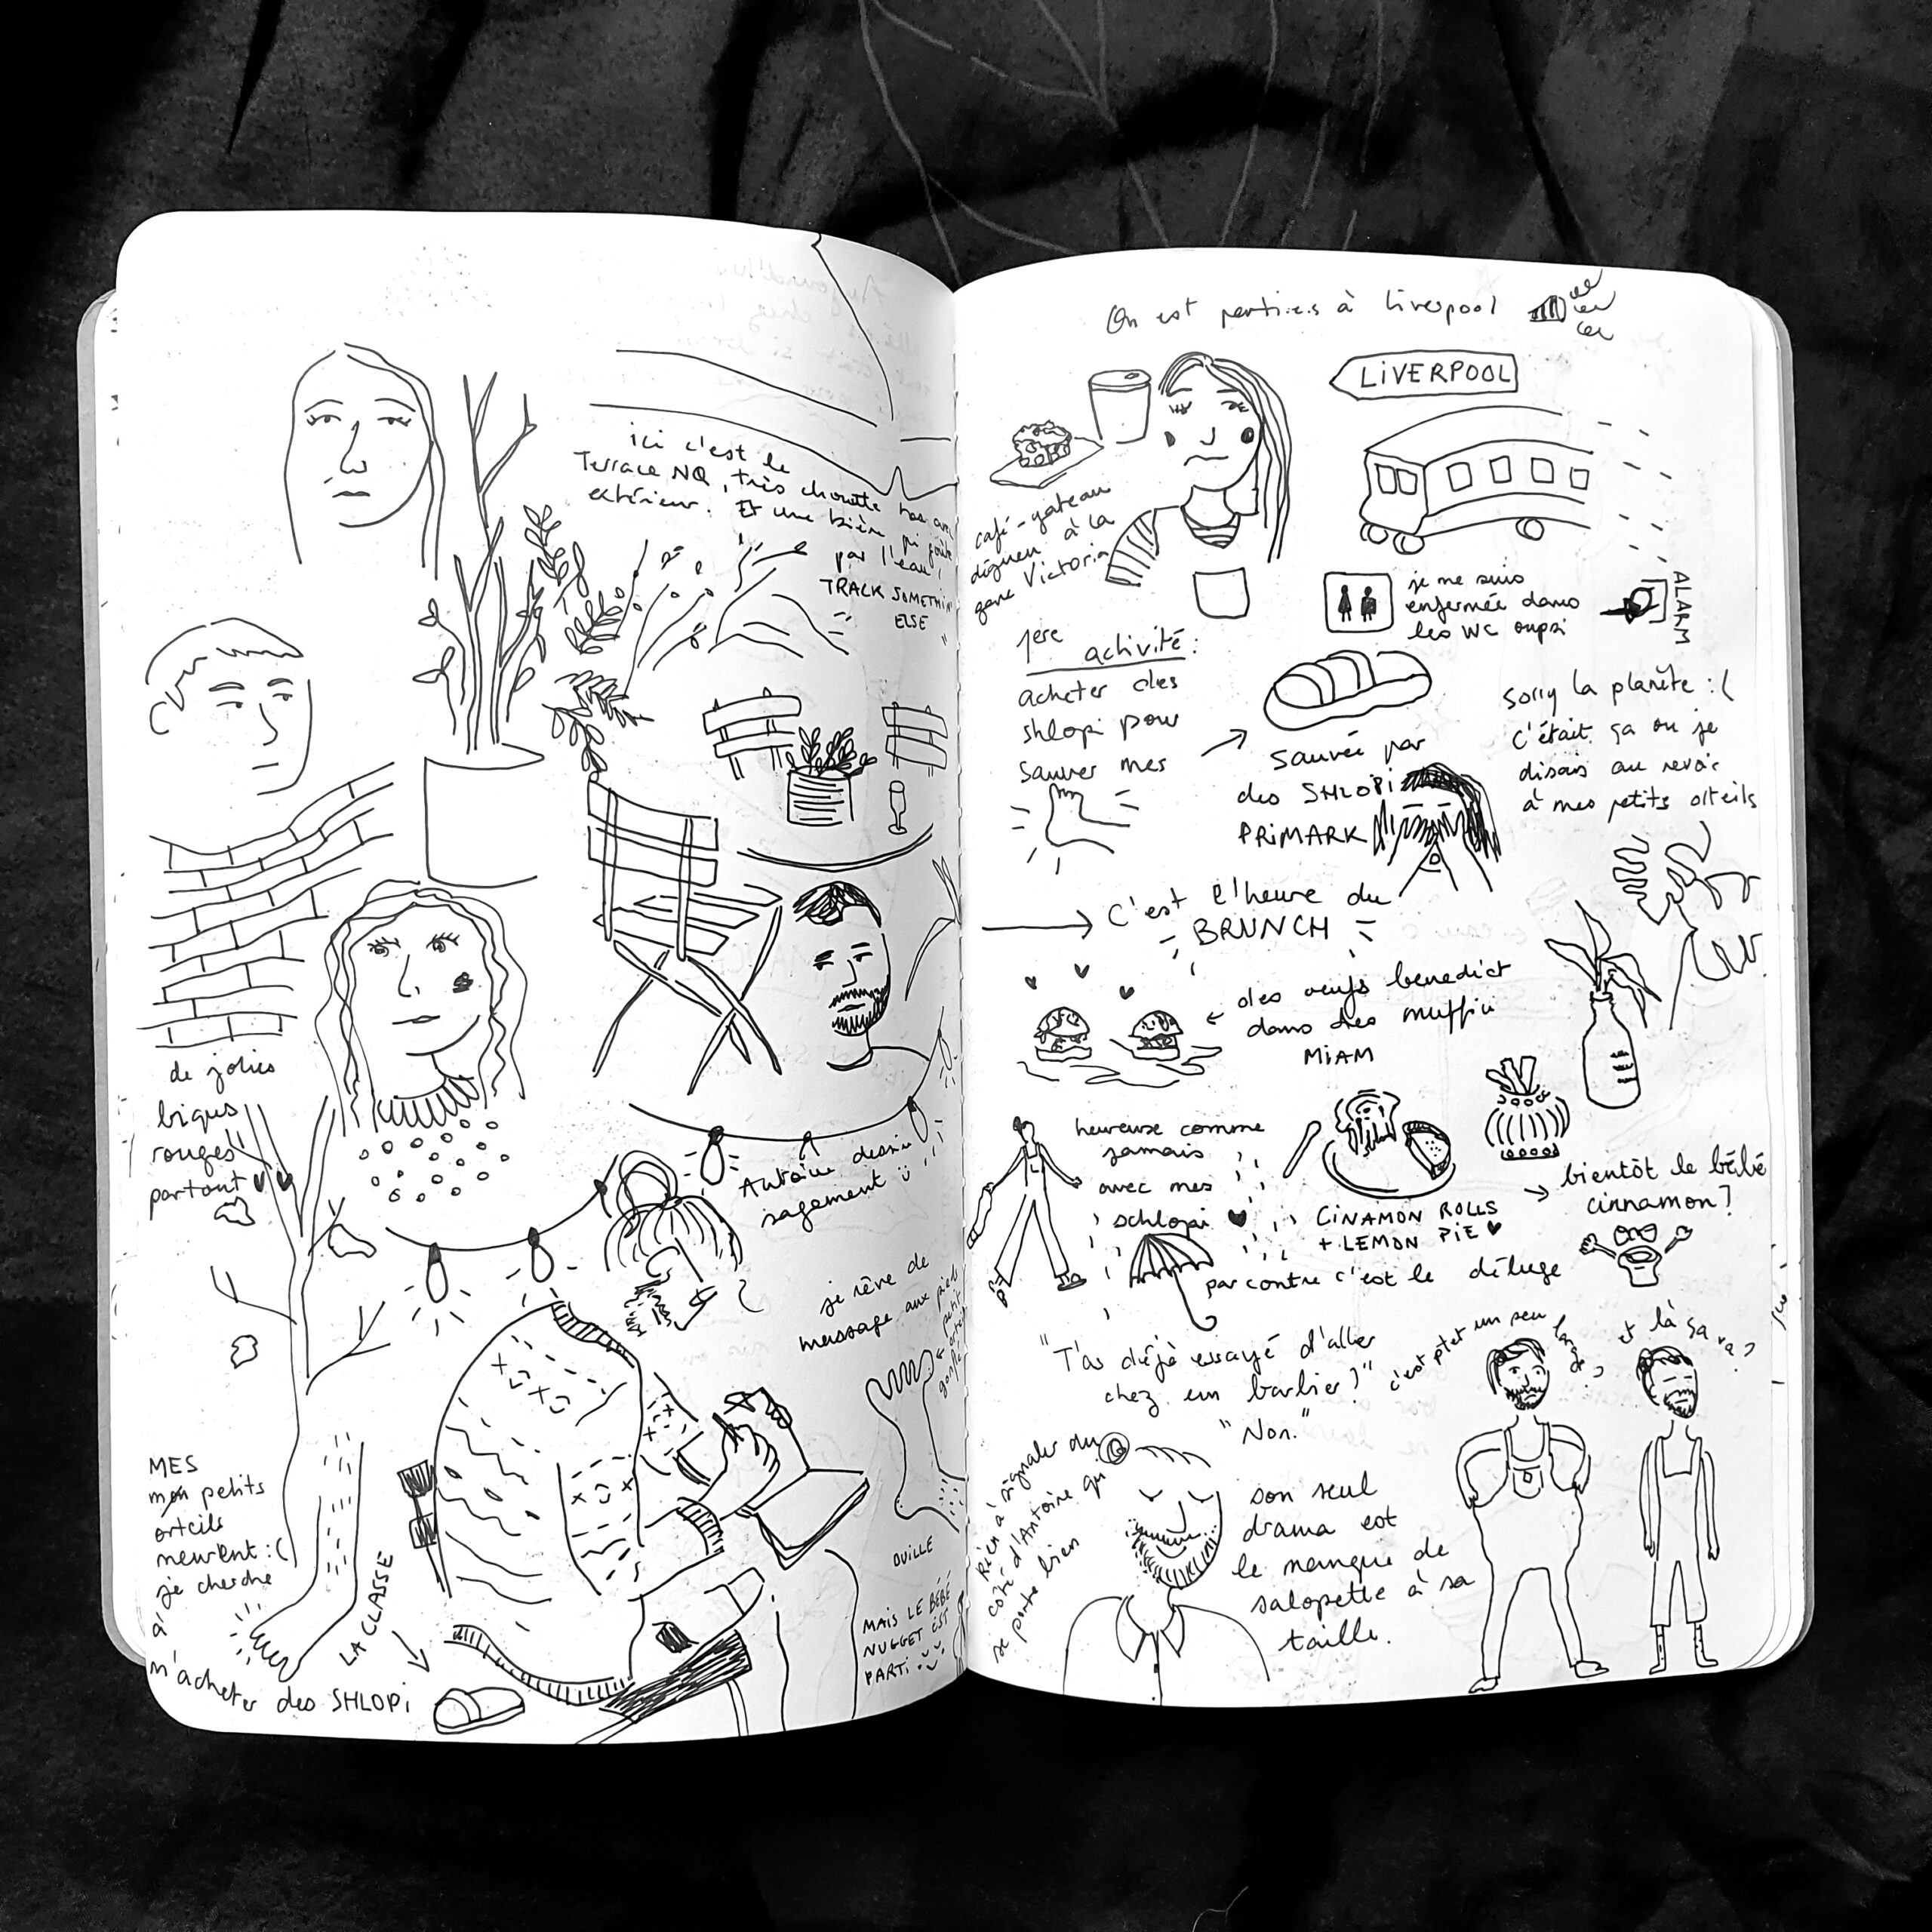 ici c'est le
Terrace NQ, très chouette bar avec
extérieur. Et une bière qui goûte
pas l'eau,
TRACK SOMETHIN
ELSE
de jolies
briques
rouges
partout
Antoine dessine
sagement
je rêve de
massage aux pieds
petit
orteil
gonflé
OUILLE
MAIS LE BÉBÉ
NUGGET EST
PARTI
MES
mon petits
orteils
meurent :(
je cherche
à
m'acheter des SHLOPI
LA CLASSE
On est parti.e.s à Liverpool
LIVERPOOL
café-gateau
dégueu à la
gare Victoria
je me suis
enfermée dans
les WC oupsi
ALARM
1ère activité :
acheter des
shlopi pour
sauver mes
sauvée par
des SHLOPi
PRiMARK
sorry la planète :(
c'était ça ou je
disais au revoir
à mes petits orteils
C'est l'heure du
BRUNCH
des oeufs benedict
dans des muffin
MiAM
heureuse comme
jamais
avec mes
schlopi
CiNAMON ROLLS
+ LEMON PiE
bientôt le bébé
cinnamon?
par contre c'est le déluge
"T'as déjà essayé d'aller
chez un barbier?"
"Non."
c'est ptet un peu large?
et là ça va?
Rien à signaler du
côté d'Antoine qui
se porte bien
son seul
drama est
le manque de
salopette à sa
taille.